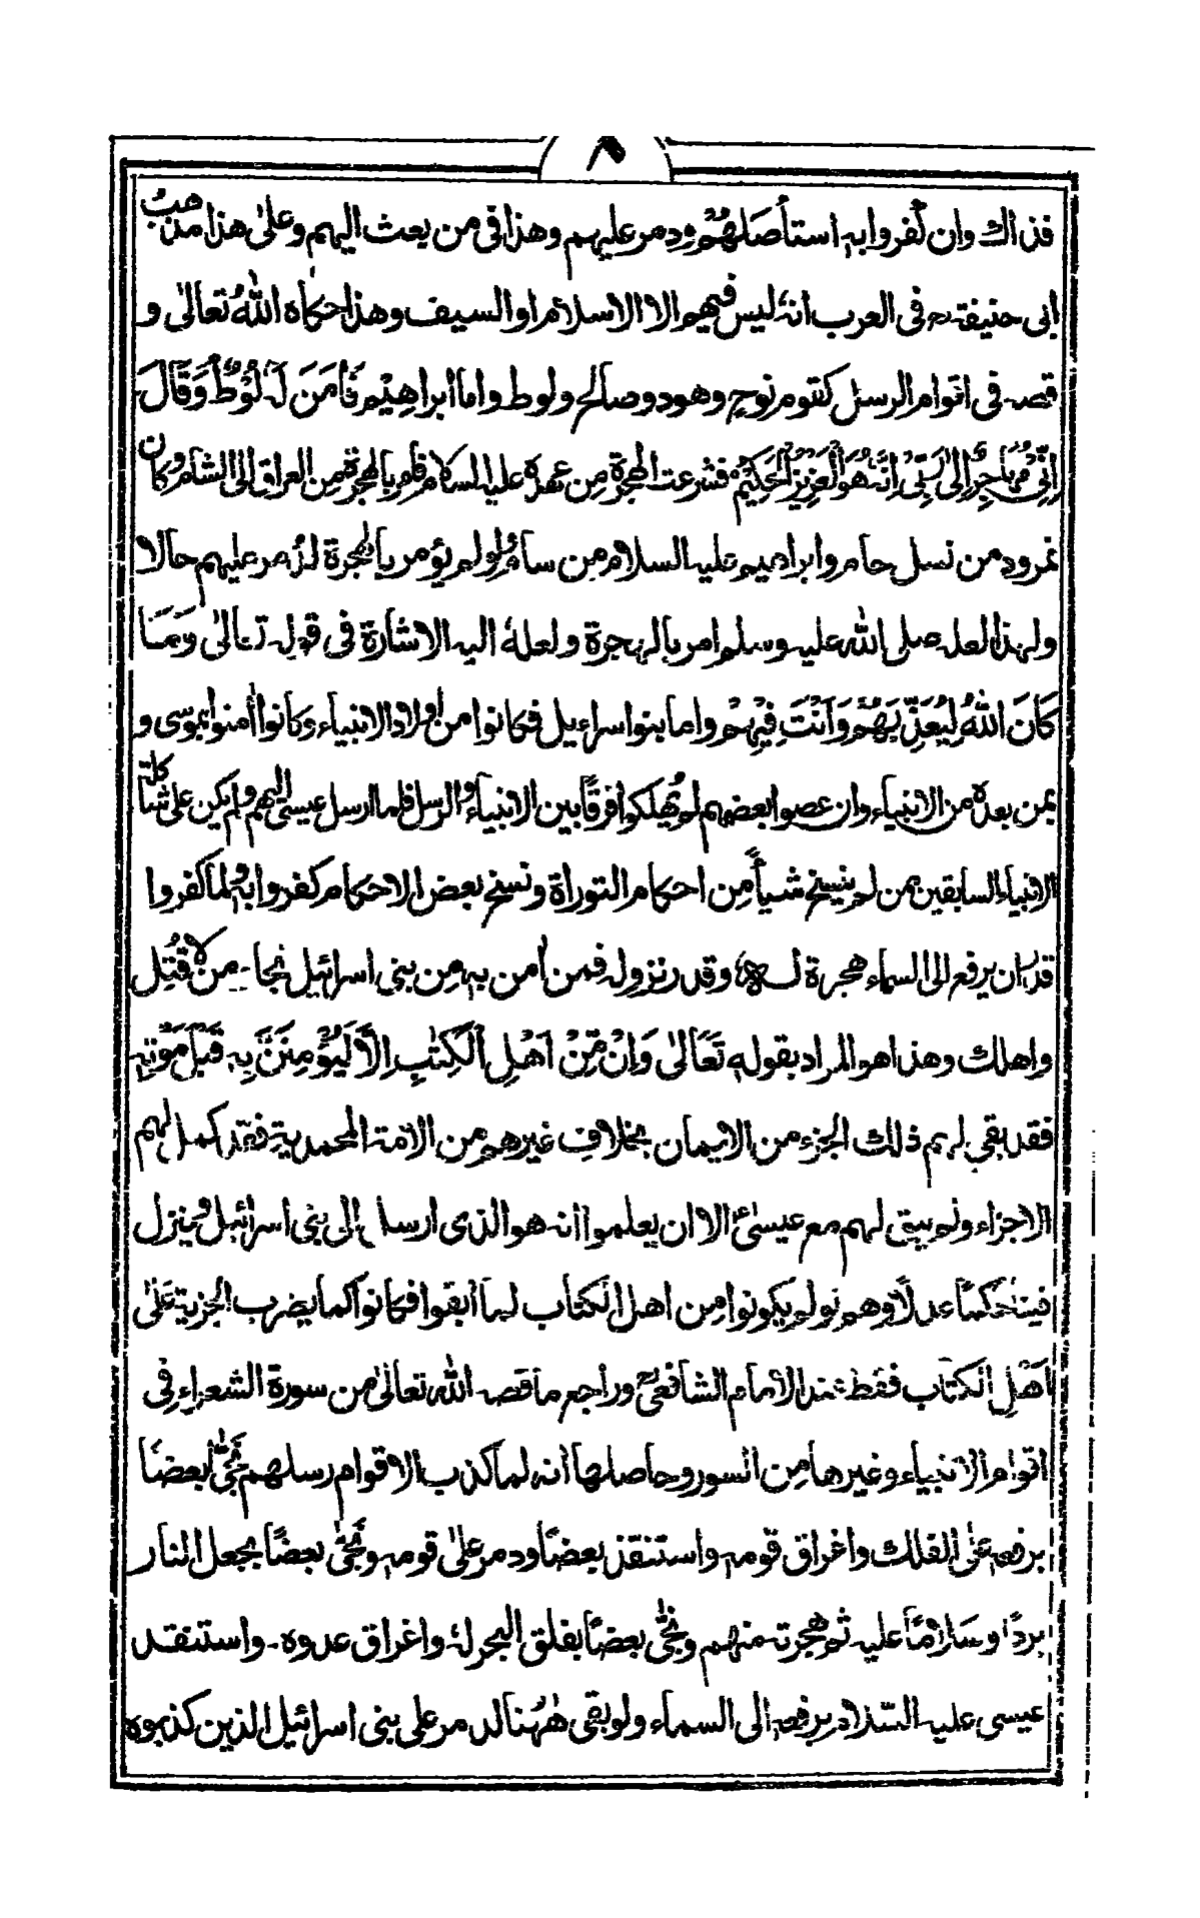 ٨
فذاك وان كفروا به استأصلهم ودمر عليهم وهذا فى من يعث اليهم وعلىٰ هذا مذهب
ابى حنيفة رح فى العرب انہ ليس فيهم الا الاسلام او السيف وهذا حكاه اللهُ تعالىٰ و
قصه فى اقوام الرسل كقوم نوح وهود وصالح ولوط واما ابراهيم فَاٰمَنَ لَهٗ لُوْطٌ وَقَالَ
اِنِّیْ مُهَاجِرٌ اِلٰى رَبِّیْ اِنَّهٗ هُوَ الْعَزِيْزُ الْحَكِيْمُ فشرعت الهجرة من عهده عليه السلام فامر بالهجرة من العراق الى الشام وكان
نمرود من نسل حام وابراهيم عليه السلام من سام ولو لم يؤمر بالهجرة لدمر عليهم حالا
ولهذا لعله صلى الله عليه وسلم امر بالهجرة ولعلهٗ اليه الاشارة فى قوله تعالىٰ وَمَا
كَانَ اللهُ لِيُعَذِّبَهُمْ وَاَنْتَ فِيْهِمْ واما بنو اسراءيل فكانوا من اولاد الانبياء وكانوا اٰمنوا بموسى و
بمن بعده من الانبياء وان عصوا بعضهم لم يُهلكوا فرقًا بين الانبياء والرسل فلما ارسل عيسى اليهم ولم يكن على شاكلة
الانبياء السابقين ممن لم ينسخ شيأً من احكام التوراة ونسخ بعض الاحكام كفروا به ولما كفروا
قدر ان يرفع الى السماء هجرة له وقدر نزوله فمن اٰمن به من بنى اسرائيل نجا ومن لا قُتِل
واهلك وهذا هو المراد بقوله تَعَالىٰ وَاِنْ مِّنْ اَهْلِ الْكِتٰبِ اِلَّا لَيُؤْمِنَنَّ بِهٖ قَبْلَ مَوْتِهٖ
فقد بقى لهم ذلك الجزء من الايمان بخلاف غيرهم من الامة المحمدية فقد كمل لهم
الاجزاء ولم يبق لهم مع عيسىٰ الا ان يعلموا انه هو الذى ارسل الى بنى اسرائيل وينزل
فينا حكمًا عدلًا وهم لو لم يكونوا من اهل الكتاب لما ابقوا فكانوا كما يضرب الجزية على
اهل الكتاب فقط عند الامام الشافعى وراجع ما قصه الله تعالىٰ من سورة الشعراء فى
اقوام الانبياء وغيرها من السور وحاصلها انه لما كذب الاقوام رسلهم نجّٰى بعضًا
برفعه على الفلك واغراق قومه واستنقذ بعضًا ودمر علىٰ قومه ونجّٰى بعضًا بجعل النار
بردًا وسلامًا عليه ثم هجرته منهم ونجّٰى بعضًا بفلق البحر له واغراق عدوه ـ واستنقذ
عيسى عليه السلام برفعه الى السماء ولو بقى هٰهنا لدمر على بنى اسرائيل الذين كذبوه